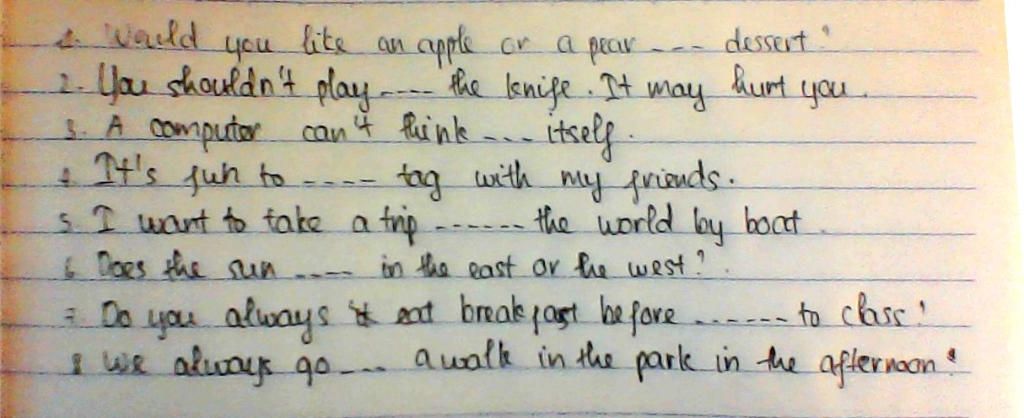 1. Would you like an apple or a pear --- dessert?
2. You shouldn't play ---- the knife. It may hurt you.
3. A computer can't think --- itself.
4. It's fun to ---- tag with my friends.
5. I want to take a trip ------ the world by boat.
6. Does the sun ---- in the east or the west?
7. Do you always eat breakfast before ------ to class?
8 We always go --- a walk in the park in the afternoon?